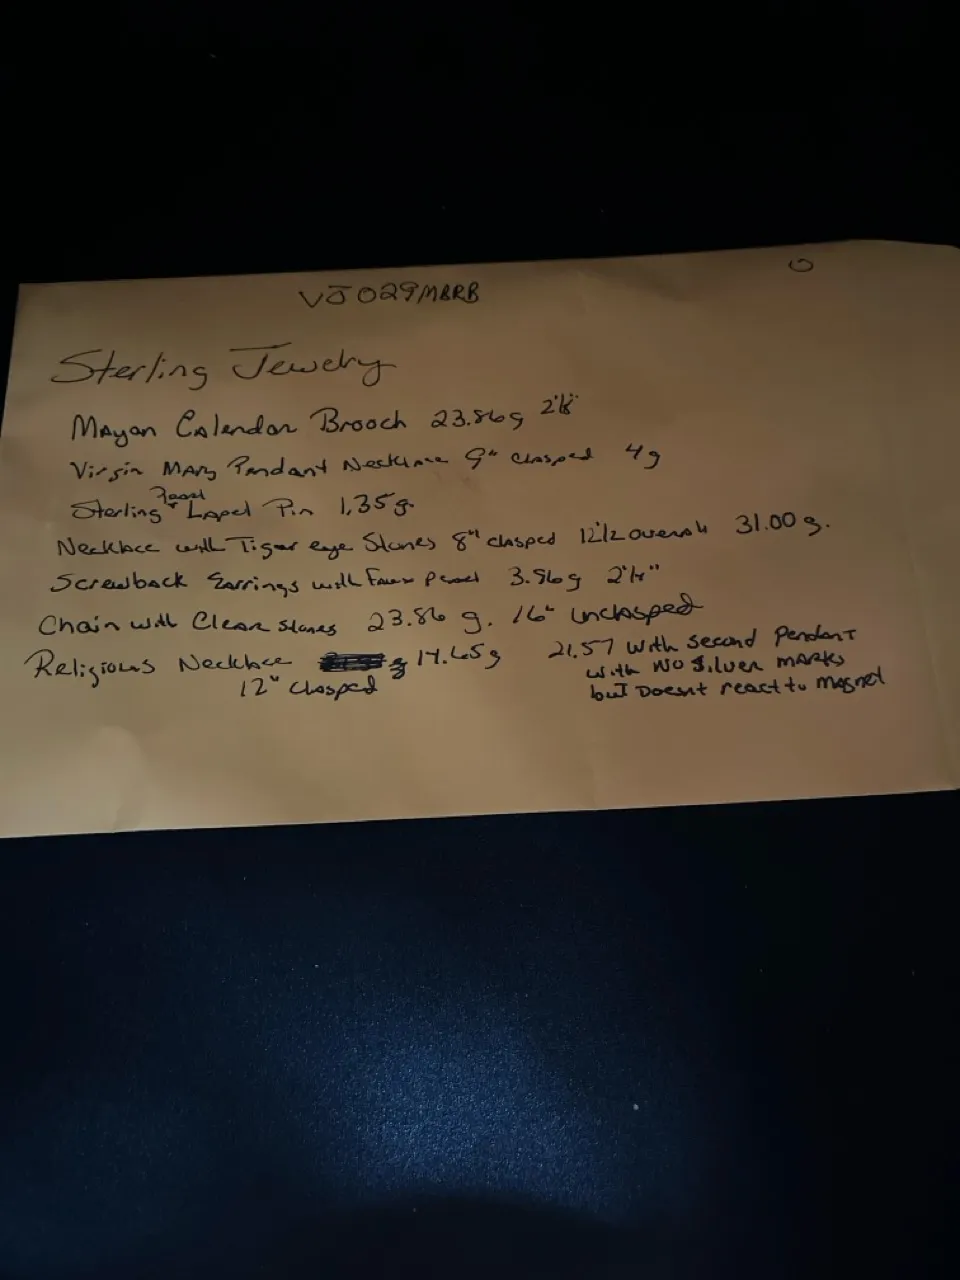 VJ029MBRB
Sterling Jewelry
Mayan Calendar Brooch 23.86g
Virgin Mary Pendant Necklace 9" clasped 4g
Sterling Lapel Pin 1.35g.
Necklace with Tiger eye Stones 8" clasped 12 1/2 overall 31.00 g.
Screwback Earrings with Faux pearl 3.96g
Chain with Clear stones 23.86 g. 16" Unclasped
Religious Necklace g 14.65g 21.57 with second Pendant
12" Clasped with NO Silver marks
but Doesnt react to Magnet